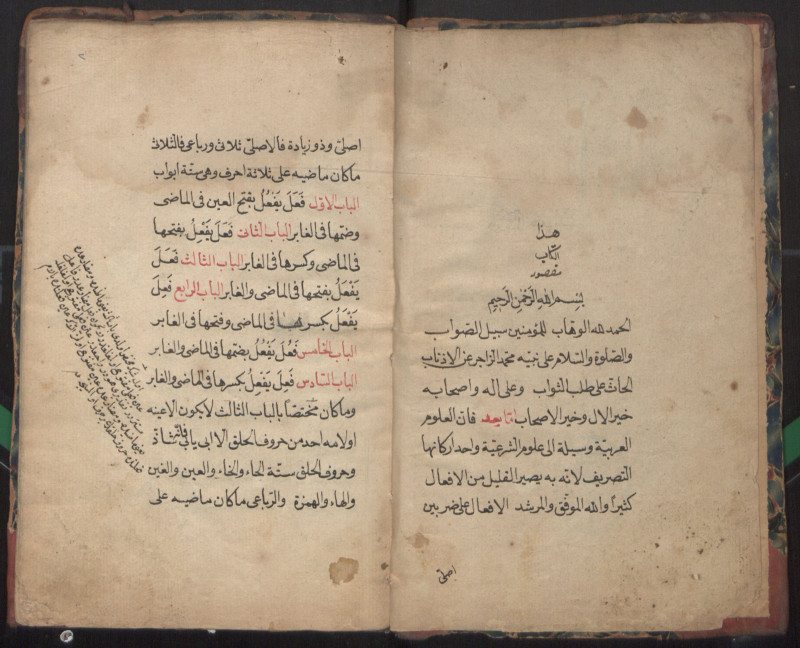 هذا
الكتاب
مقصود
بسم الله الرحمن الرحيم
الحمد لله الوهاب للمؤمنين سبيل الصواب
والصلوة والسلام على نبيه محمد الزاجر عن الاذناب
الحاث على طلب الثواب وعلى اله واصحابه
خير الال وخير الاصحاب اما بعد فان العلوم
العربية وسيلة الى علوم الشرعية واحد اركانها
التصريف لانه به يصير القليل من الافعال
كثيرا والله الموفق والمرشد الافعال على ضربين
اصلى
اصلى وذو زيادة فالاصلى ثلاثى ورباعى فالثلاثى
ما كان ماضيه على ثلاثة احرف وهى ستة ابواب
الباب الاول فَعَلَ يَفْعُلُ بفتح العين فى الماضى
وضمها فى الغابر الباب الثانى فَعَلَ يَفْعِلُ بفتحها
فى الماضى وكسرها فى الغابر الباب الثالث فَعَلَ
يَفْعَلُ بفتحها فى الماضى والغابر الباب الرابع فَعِلَ
يَفْعَلُ بكسرها فى الماضى وفتحها فى الغابر
الباب الخامس فَعُلَ يَفْعُلُ بضمها فى الماضى والغابر
الباب السادس فَعِلَ يَفْعِلُ بكسرها فى الماضى والغابر
وما كان مختصا بالباب الثالث لا يكون الا عينه
او لامه احد من حروف الحلق الا ابى يابى فانه شاذ
وحروف الحلق ستة الحاء والخاء والعين والغين
والهاء والهمزة والرباعى ما كان ماضيه على